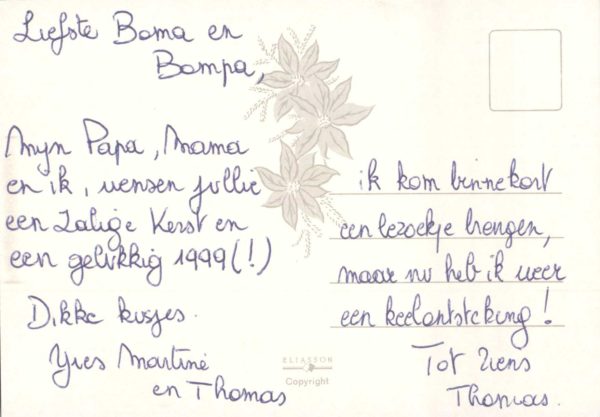 Liefste Boma en
Bompa,
Mijn Papa, Mama
en ik, wensen jullie
een Zalige Kerst en
een gelukkig 1999(!)
Dikke kusjes.
Yves Martine
en Thomas
ik kom binnekort
een bezoekje brengen,
maar nu heb ik weer
een keelontsteking!
Tot ziens
Thomas.
ELIASSON
Copyright